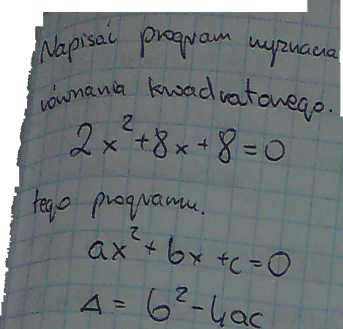 Napisać program wyznacza
równania kwadratowego.
2x²+8x+8=0
tego programu.
ax²+bx+c=0
Δ=b²-4ac